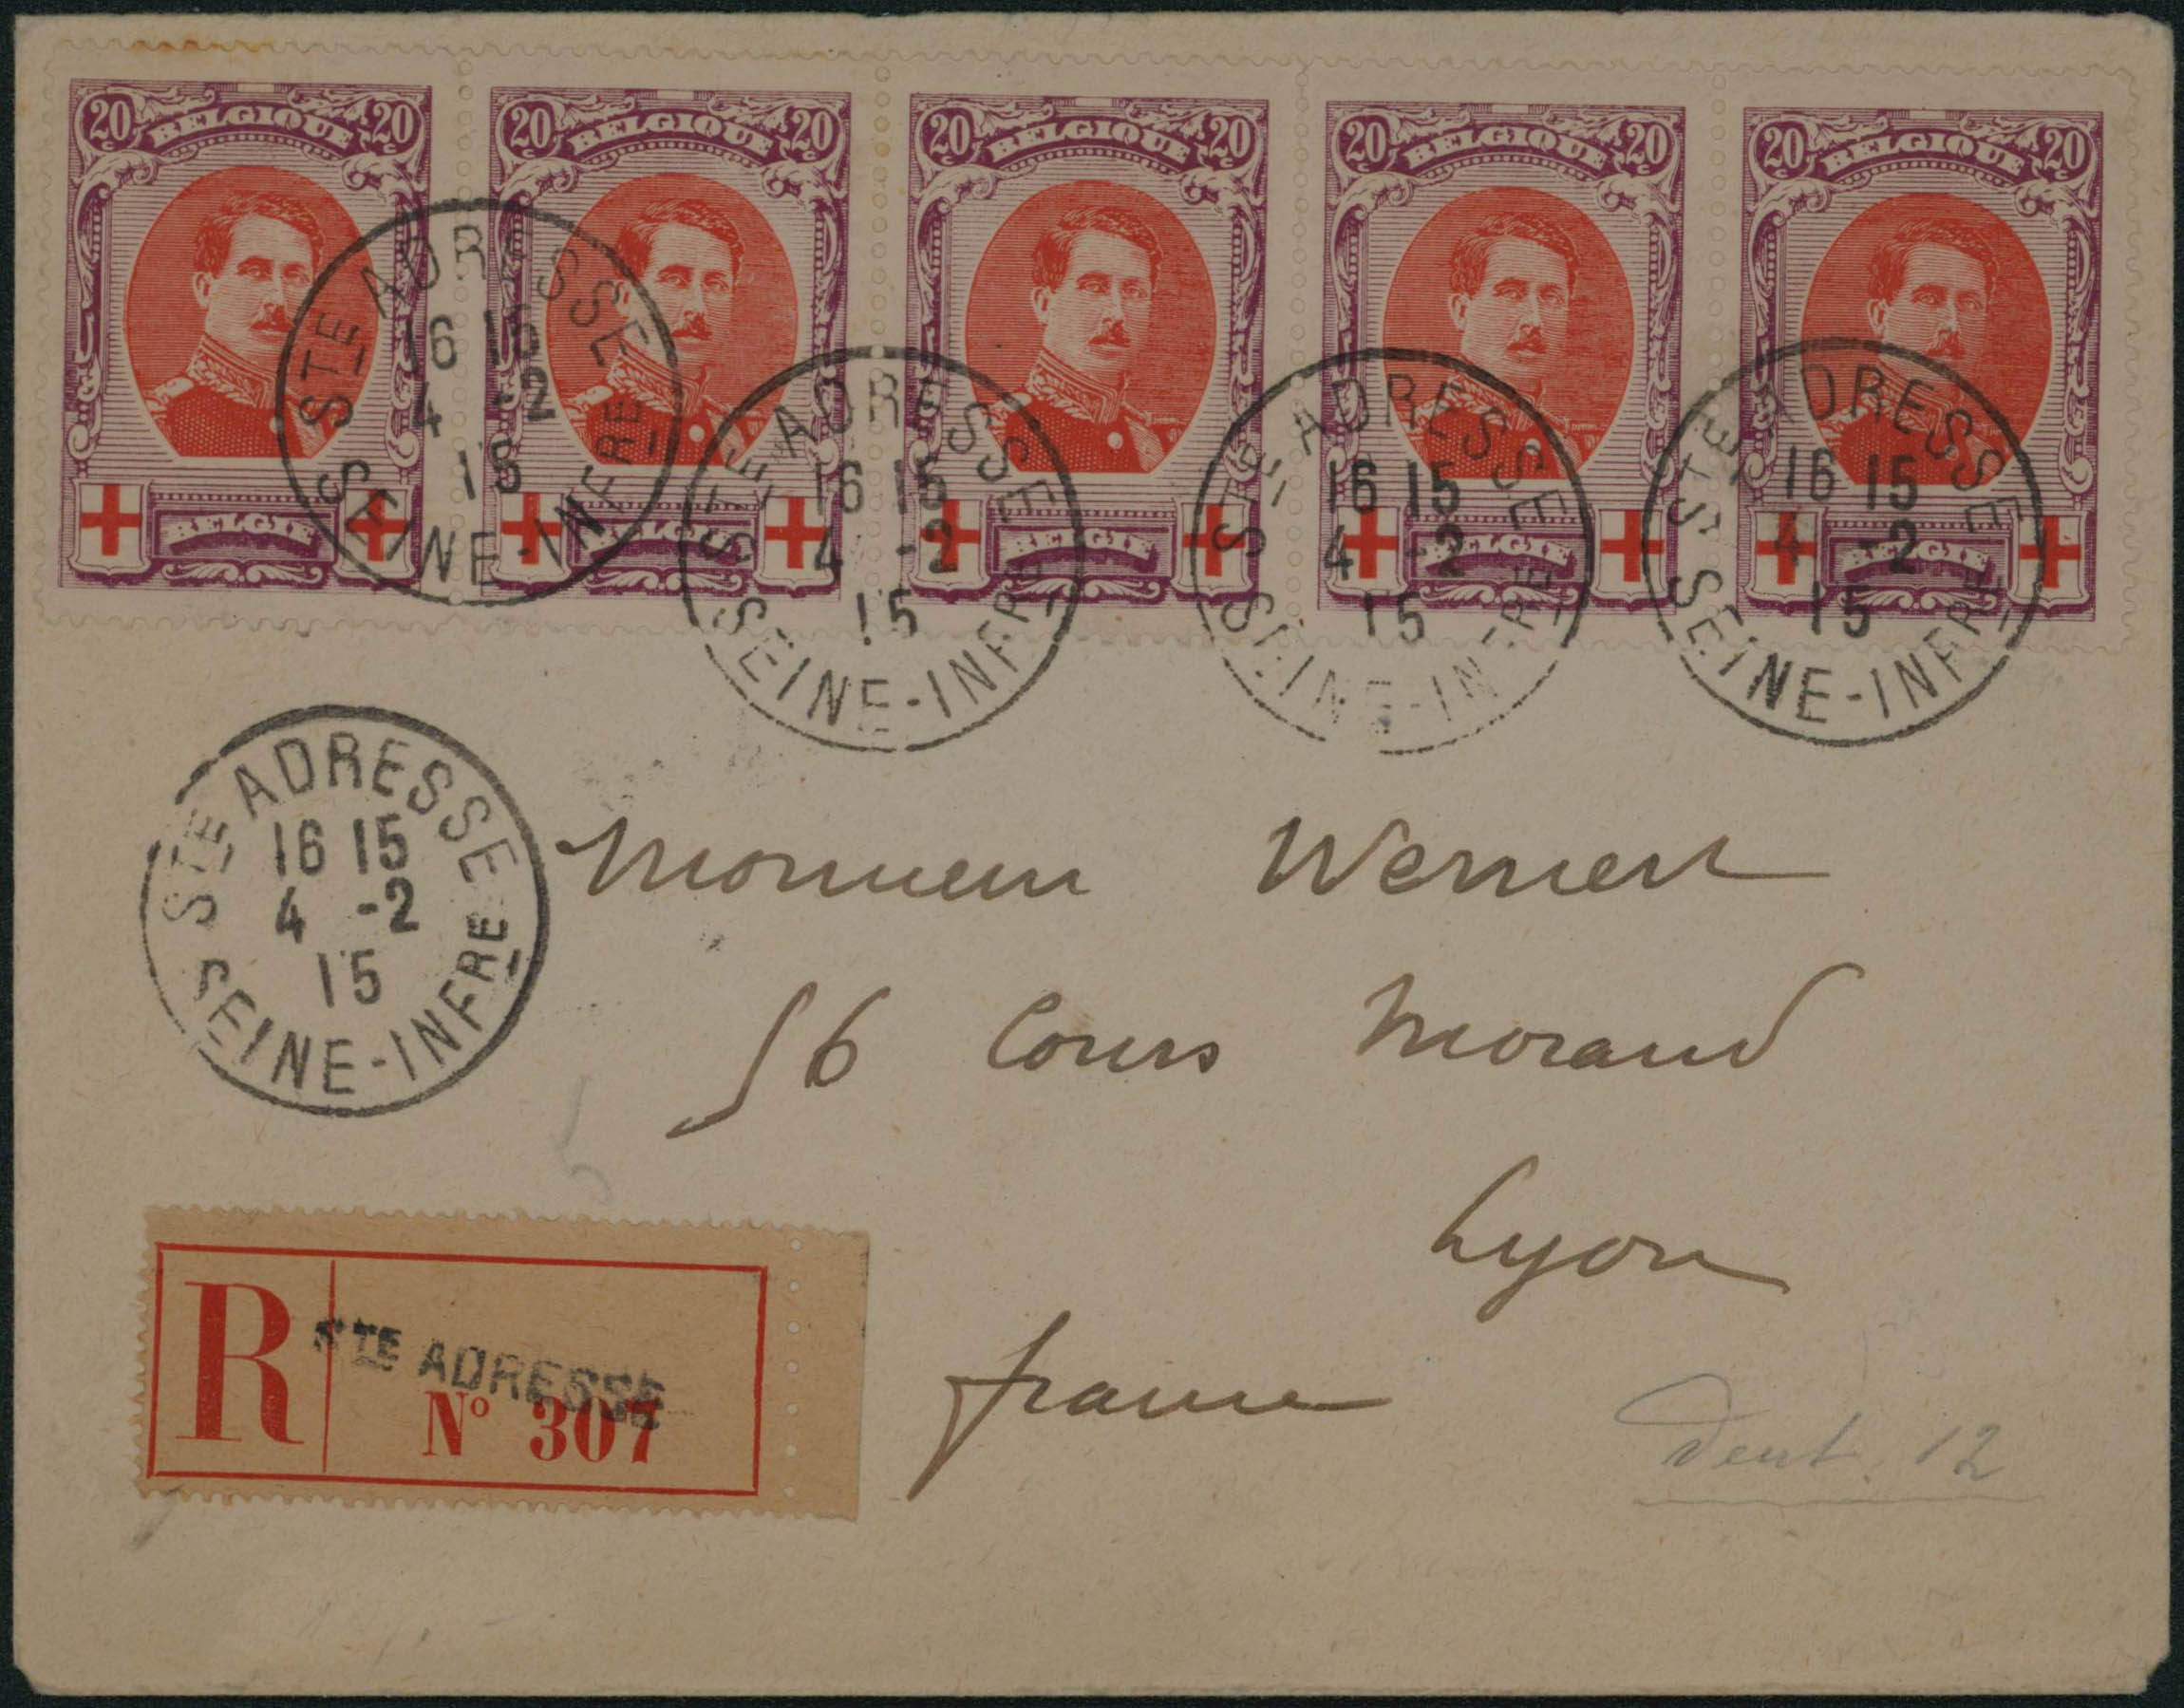 20c BELGIQUE 20c
20c BELGIQUE 20c
20c BELGIQUE 20c
20c BELGIQUE 20c
20c BELGIQUE 20c
BELGIE
BELGIE
BELGIE
BELGIE
BELGIE
STE ADRESSE
16 15
4 -2
15
SEINE-INFRE
STE ADRESSE
16 15
4 -2
15
SEINE-INFRE
STE ADRESSE
16 15
4 -2
15
SEINE-INFRE
STE ADRESSE
16 15
4 -2
15
SEINE-INFRE
STE ADRESSE
16 15
4 -2
15
SEINE-INFRE
Monsieur Wernert
56 Cours Morand
Lyon
france
R STE ADRESSE
No 307
Dent. 12